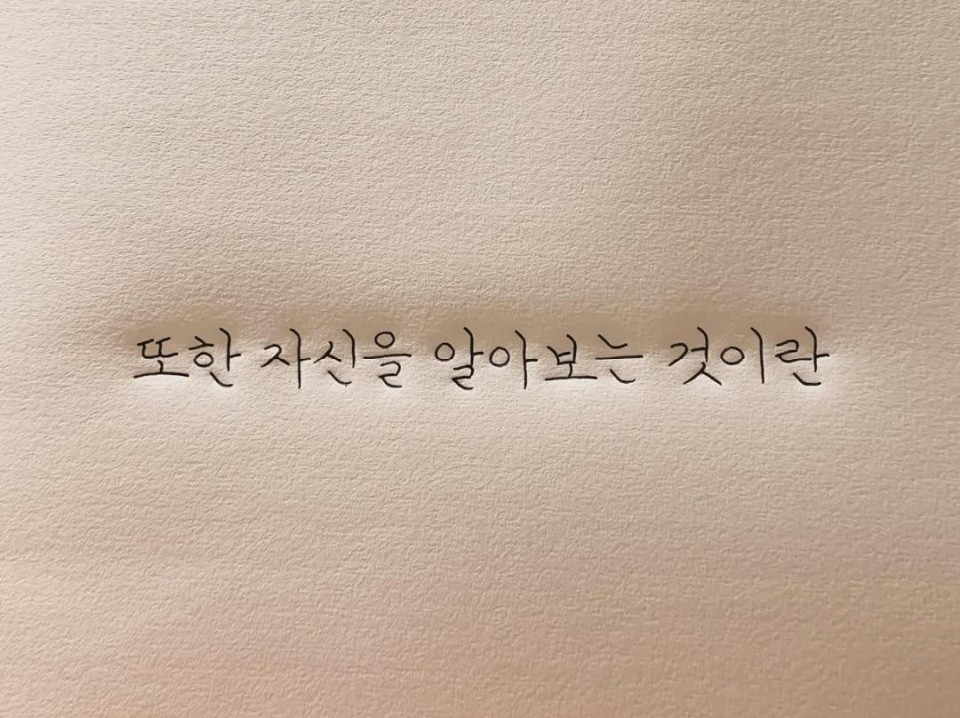 또한 자신을 알아보는 것이란